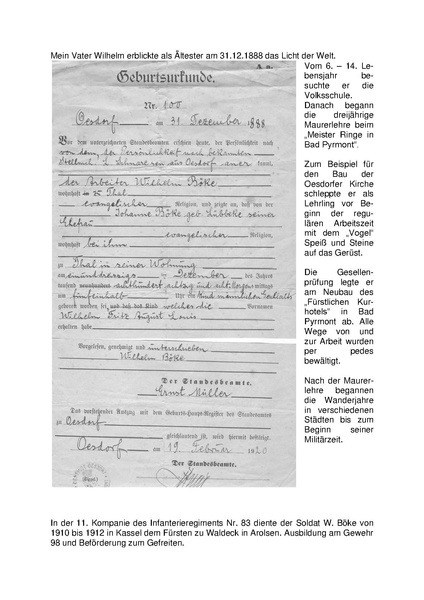 Mein Vater Wilhelm erblickte als Ältester am 31.12.1888 das Licht der Welt.
Geburtsurkunde.
Nr. 100
Oesdorf am 31. Dezember 1888
Vor dem unterzeichneten Standesbeamten erschien heute, der Persönlichkeit nach
von dem, der Persönlichkeit nach bekannten
aus Oesdorf
der Arbeiter Wilhelm Böke
wohnhaft in Thal
evangelischer Religion, und zeigte an, daß von der
Johanne Böke geb. Lübbeke seiner
Ehefrau
evangelischer Religion,
wohnhaft bei ihm
zu Thal in seiner Wohnung
am einunddreissigs ten Dezember des Jahres
tausend achthundert achtzig und acht
um fünfeinhalb Uhr ein Kind männlichen Geschlechts
geboren worden sei, und daß das Kind Vornamen
Wilhelm Fritz August Louis
erhalten habe.
Vorgelesen, genehmigt und unterschrieben
Wilhelm Böke
Der Standesbeamte.
Ernst Müller
Daß vorstehender Auszug mit dem Geburts-Haupt-Register des Standesamts
zu Oesdorf
gleichlautend ist, wird hiermit bestätigt.
Oesdorf am 19. Februar 1920
Der Standesbeamte.
Vom 6. – 14. Le-
bensjahr be-
suchte er die
Volksschule.
Danach begann
die dreijährige
Maurerlehre beim
„Meister Ringe in
Bad Pyrmont“.
Zum Beispiel für
den Bau der
Oesdorfer Kirche
schleppte er als
Lehrling vor Be-
ginn der regu-
lären Arbeitszeit
mit dem „Vogel“
Speiß und Steine
auf das Gerüst.
Die Gesellen-
prüfung legte er
am Neubau des
„Fürstlichen Kur-
hotels“ in Bad
Pyrmont ab. Alle
Wege von und
zur Arbeit wurden
per pedes
bewältigt.
Nach der Maurer-
lehre begannen
die Wanderjahre
in verschiedenen
Städten bis zum
Beginn seiner
Militärzeit.
In der 11. Kompanie des Infanterieregiments Nr. 83 diente der Soldat W. Böke von
1910 bis 1912 in Kassel dem Fürsten zu Waldeck in Arolsen. Ausbildung am Gewehr
98 und Beförderung zum Gefreiten.